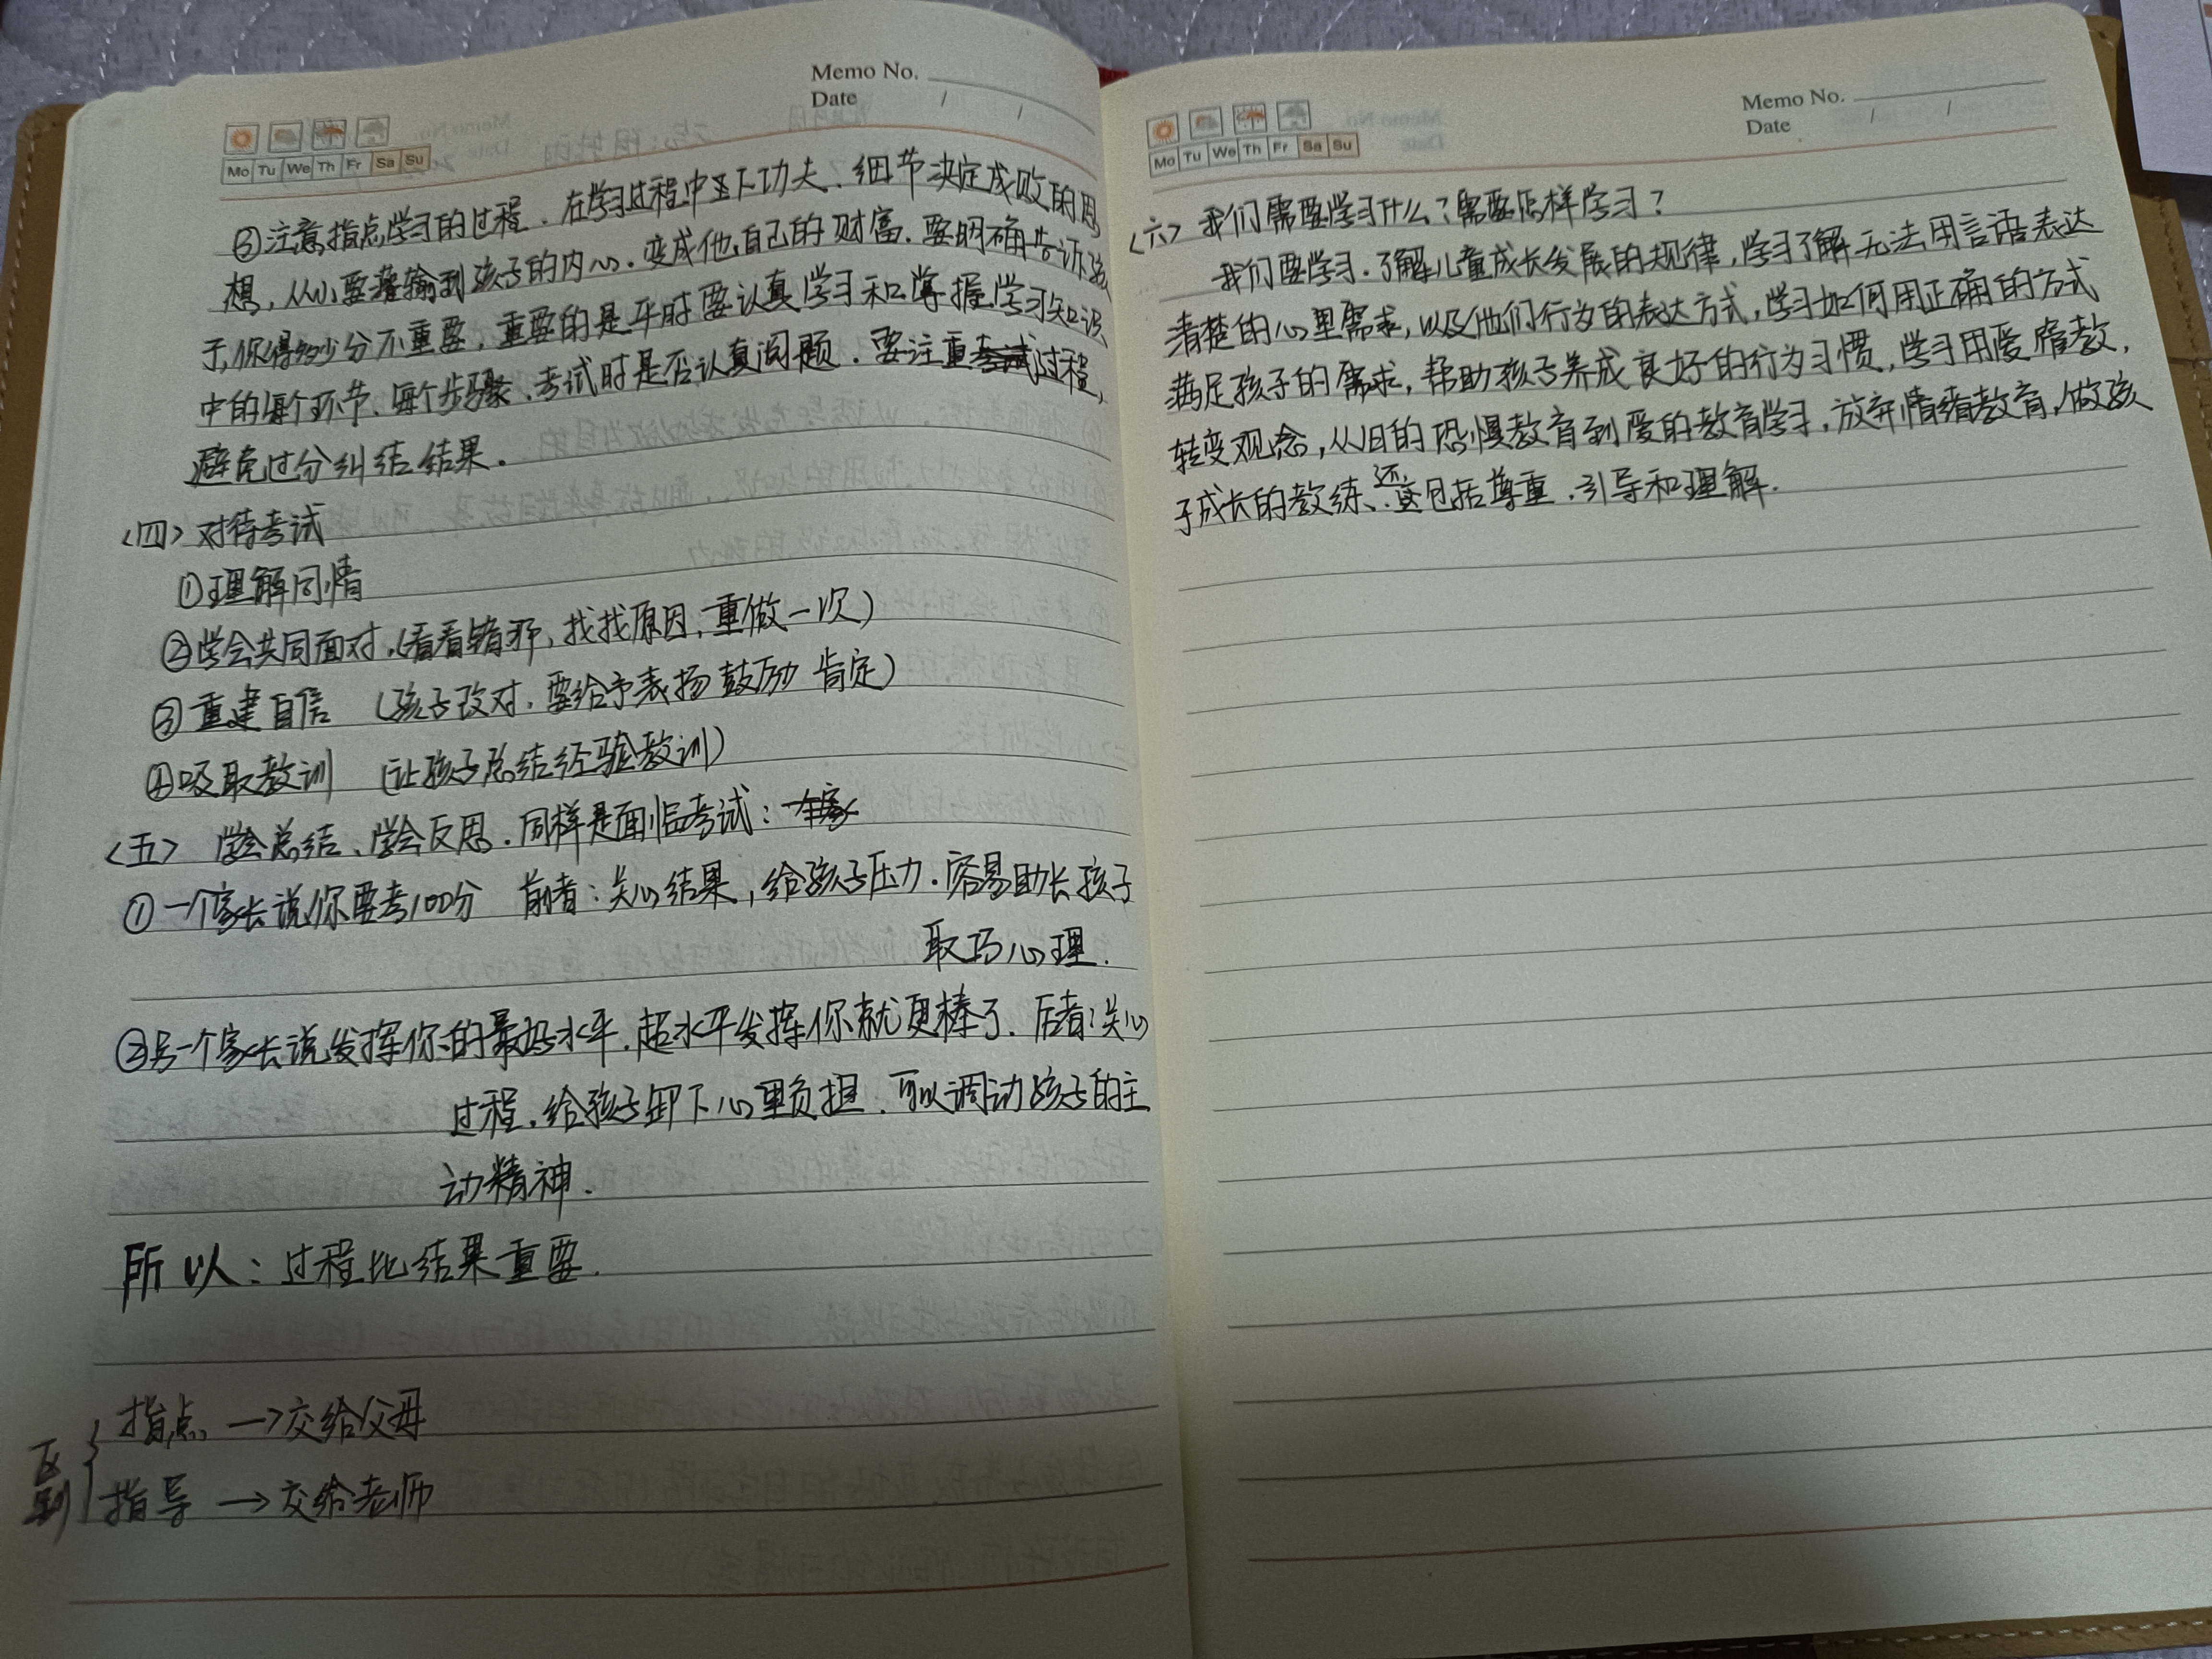 Memo No.
Date / /
Mo Tu We Th Fr Sa Su
③注意指点学习的过程、在学习过程中要下功夫、细节决定成败的思
想，从小要灌输到孩子的内心.变成他自己的财富.要明确告诉孩
子,你得多少分不重要，重要的是平时要认真学习和掌握学习知识
中的每个环节、每个步骤、考试时是否认真阅题.要注重过程,
避免过分纠结结果.
<四>对待考试
①理解同情
②学会共同面对.(看看错哪,找找原因,重做一次)
③重建自信 (孩子改对,要给予表扬鼓励 肯定)
④吸取教训 (让孩子总结经验教训)
<五> 学会总结、学会反思.同样是面临考试:
①一个家长说你要考100分 前者:关心结果,给孩子压力.容易助长孩子
取巧心理.
②另一个家长说发挥你的最好水平.超水平发挥你就更棒了.后者:关心
过程.给孩子卸下心里负担.可以调动孩子的主
动精神.
所以:过程比结果重要.
区别 指点→交给父母
指导→交给老师
Memo No.
Date / /
Mo Tu We Th Fr Sa Su
<六>我们需要学习什么?需要怎样学习?
我们要学习.了解儿童成长发展的规律,学习了解无法用言语表达
清楚的心里需求,以及他们行为的表达方式,学习如何用正确的方式
满足孩子的需求,帮助孩子养成良好的行为习惯,学习用爱管教,
转变观念,从旧的恐惧教育到爱的教育学习,放弃情绪教育,做孩
子成长的教练、还包括尊重.引导和理解.